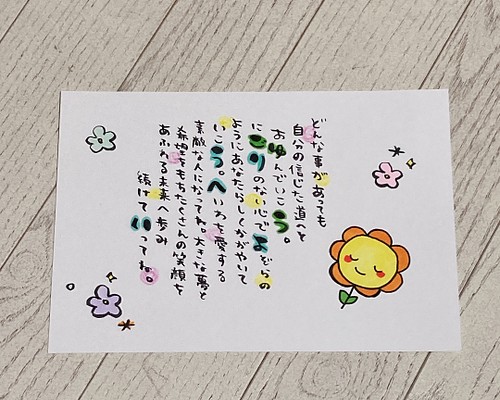 どんな事があっても
自分の信じた道へと
あゆんでいこう。
にごりのない心でよぞらの
ようにあなたらしくかがやいて
いこう。へいわを愛する
素敵な人になってね。大きな夢と
希望をもちたくさんの笑顔を
あふれる未来へ歩み
続けていってね。